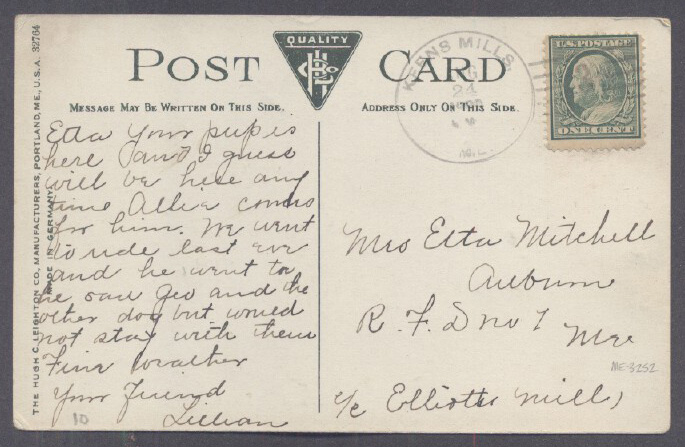 THE HUGH C. LEIGHTON CO., MANUFACTURERS, PORTLAND, ME., U.S.A. 32764
MADE IN GERMANY
POST CARD
QUALITY
HLCo
MESSAGE MAY BE WRITTEN ON THIS SIDE.
ADDRESS ONLY ON THIS SIDE.
KEENS MILLS
24
ME.
U.S. POSTAGE
ONE CENT
Etta Your pup is
here and I guess
will be here any
time Allie comes
for him. We went
to ride last eve
and he went too
he saw Geo and the
other dog but would
not stay with them
Fine Weather
Your Friend
Lillian
10
Mrs Etta Mitchell
Auburn
R.F.D no 7
Me
c/o Elliotts Mills
ME-3252